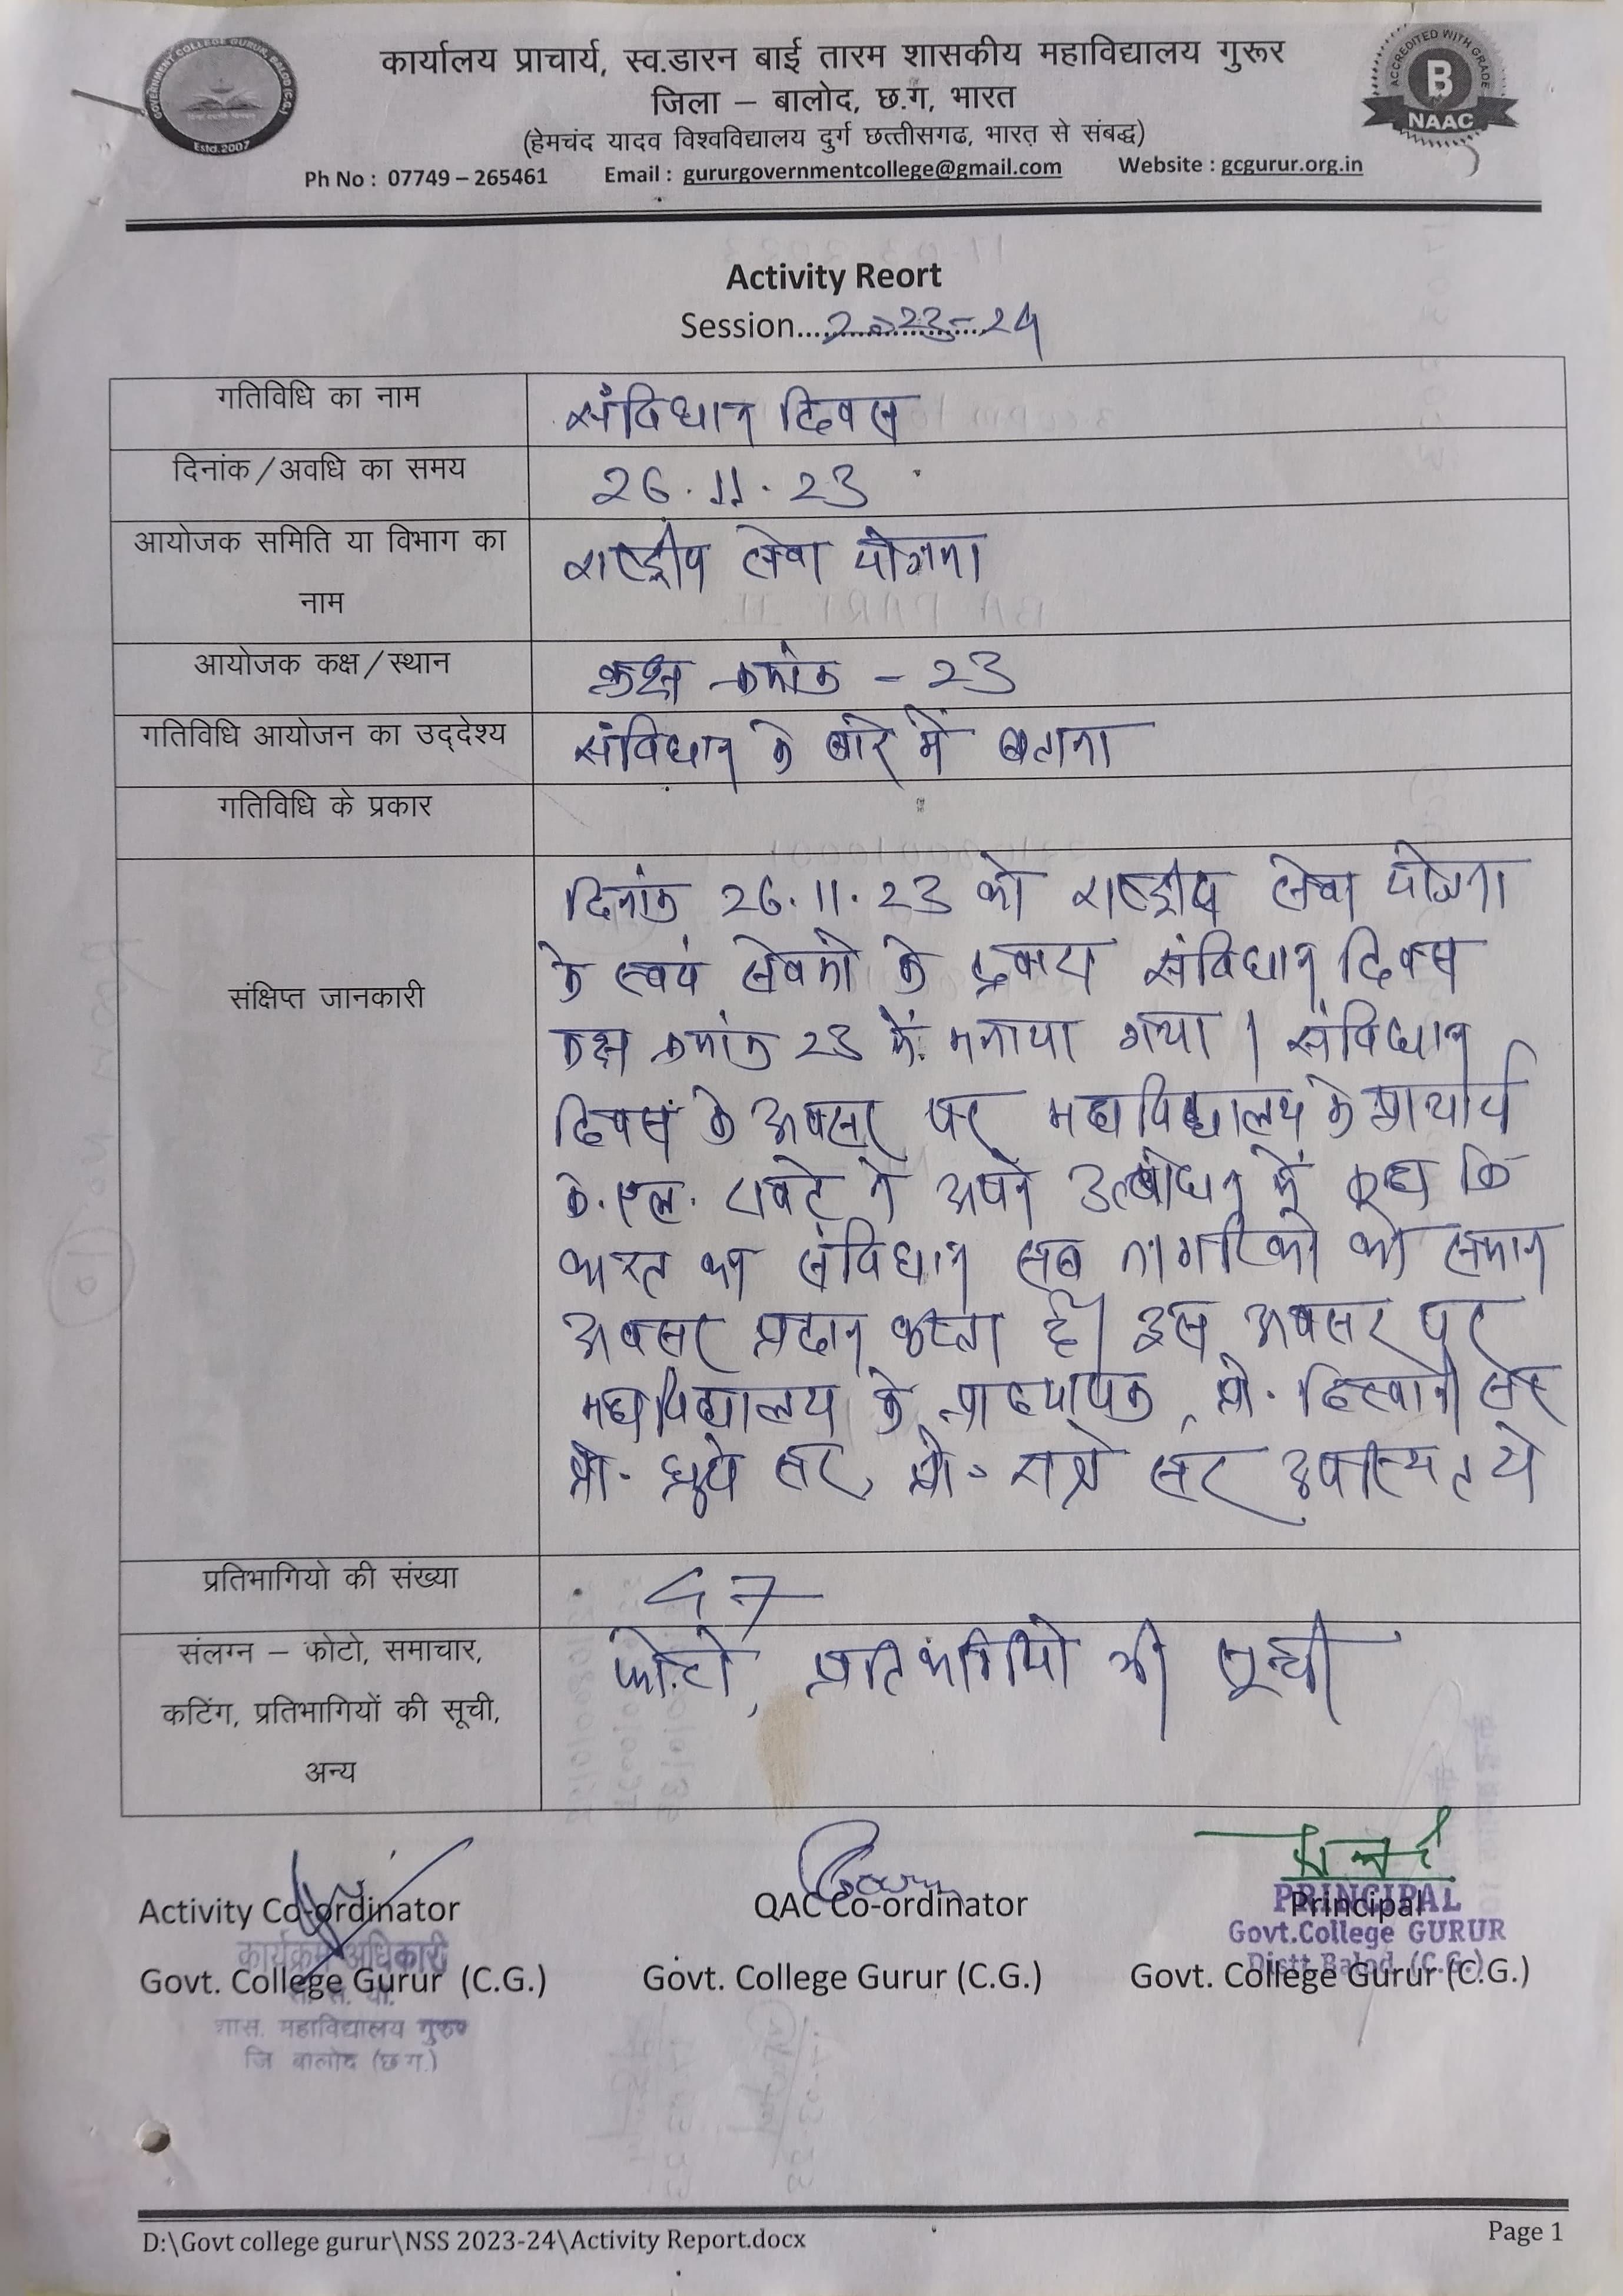 GOVERNMENT COLLEGE GURUR, BALOD (C.G.)
Estd.2007
ACCREDITED WITH GRADE
B
NAAC
कार्यालय प्राचार्य, स्व.डारन बाई तारम शासकीय महाविद्यालय गुरूर
जिला – बालोद, छ.ग, भारत
(हेमचंद यादव विश्वविद्यालय दुर्ग छत्तीसगढ, भारत से संबद्ध)
Ph No : 07749 – 265461 Email : gururgovernmentcollege@gmail.com Website : gcgurur.org.in
Activity Reort
Session....2023-24
गतिविधि का नाम संविधान दिवस
दिनांक/अवधि का समय 26.11.23
आयोजक समिति या विभाग का राष्ट्रीय सेवा योजना
नाम
आयोजक कक्ष/स्थान कक्ष क्रमांक - 23
गतिविधि आयोजन का उद्देश्य संविधान के बारे में बताना
गतिविधि के प्रकार
संक्षिप्त जानकारी
दिनांक 26.11.23 को राष्ट्रीय सेवा योजना
के स्वयं सेवको के द्वारा संविधान दिवस
कक्ष क्रमांक 23 में मनाया गया। संविधान
दिवस के अवसर पर महाविद्यालय के प्राचार्य
के.एल. रावटे ने अपने उद्बोधन में कहा कि
भारत का संविधान सब नागरिको को समान
अवसर प्रदान करता है। इस अवसर पर
महाविद्यालय के प्राध्यापक, प्रो. सर
प्रो. ध्रुवे सर, प्रो. सर उपस्थित थे
प्रतिभागियो की संख्या 47
संलग्न – फोटो, समाचार, फोटो, प्रतिभागियो की सूची
कटिंग, प्रतिभागियों की सूची,
अन्य
Activity Co-ordinator QAC Co-ordinator Principal
PRINCIPAL
Govt.College GURUR
Distt.Balod (C.G.)
कार्यक्रम अधिकारी
Govt. College Gurur (C.G.) Govt. College Gurur (C.G.) Govt. College Gurur (C.G.)
रा. से. यो.
शास. महाविद्यालय गुरूर
जि बालोद (छ.ग.)
D:\Govt college gurur\NSS 2023-24\Activity Report.docx Page 1